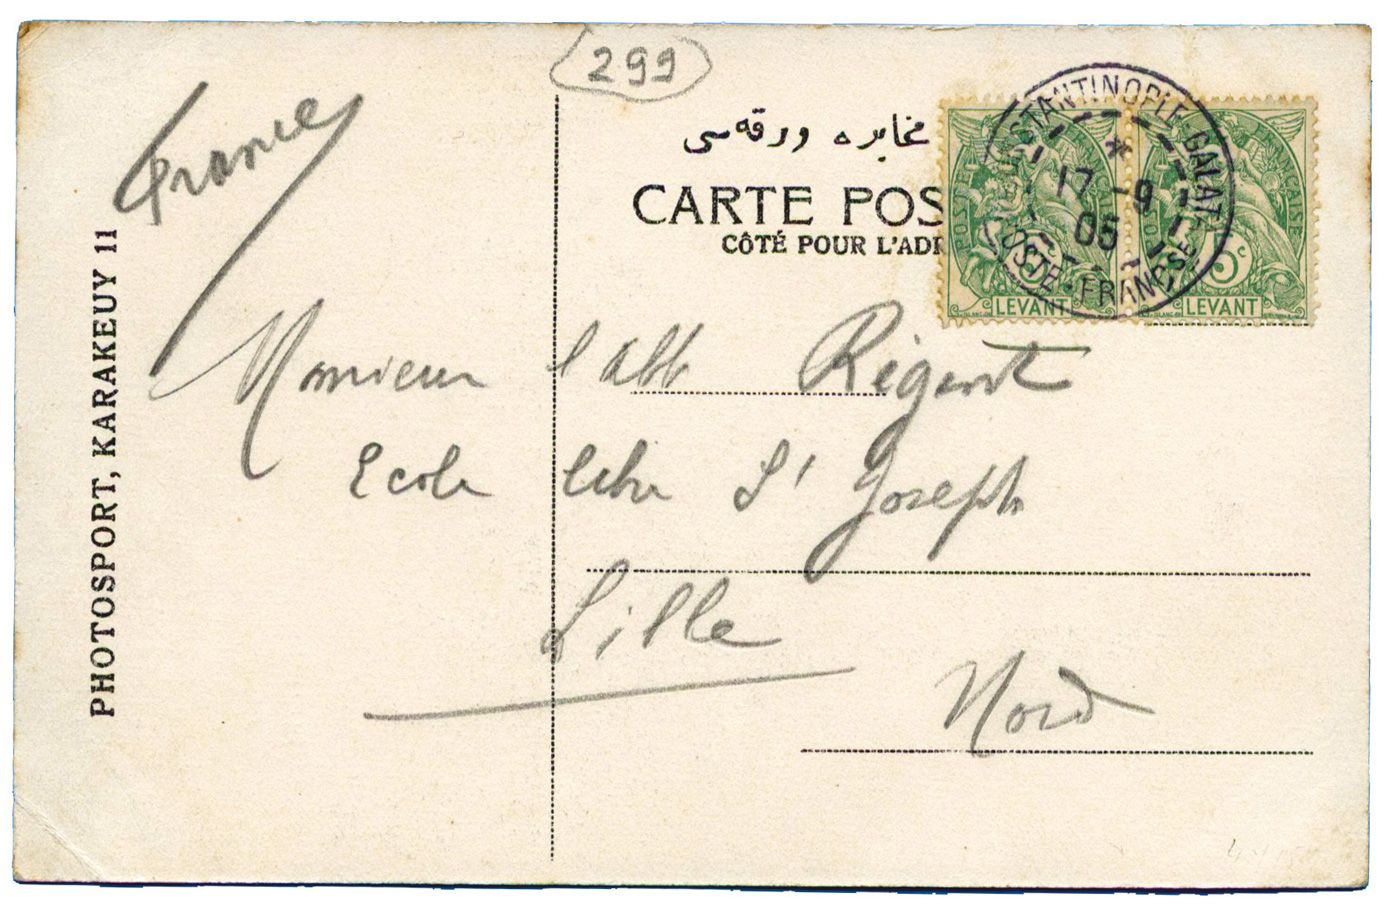 299
France
مخابره ورقه سى
CARTE POS
CÔTÉ POUR L'ADR
CONSTANTINOPLE-GALATA
17 -9
05
POSTE FRANÇSE
POSTE FRANÇAISE
5c
LEVANT
LEVANT
PHOTOSPORT, KARAKEUY 11
Monsieur l'abb Régent
Ecole libre St Joseph
Lille
Nord